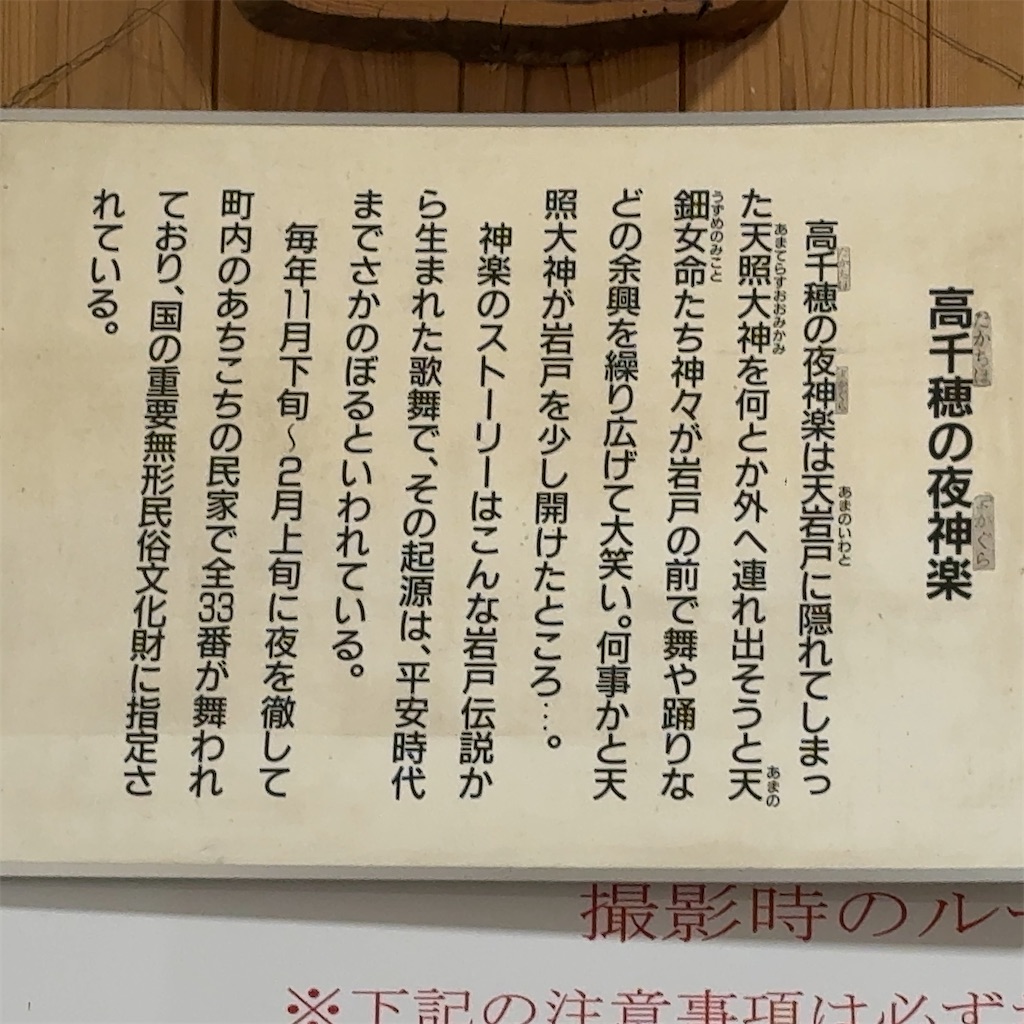 高千穂の夜神楽
たかちほ
よかぐら
高千穂の夜神楽は天岩戸に隠れてしまっ
たかちほ
よかぐら
あまのいわと
た天照大神を何とか外へ連れ出そうと天
あまてらすおおみかみ
あまの
鈿女命たち神々が岩戸の前で舞や踊りな
うずめのみこと
どの余興を繰り広げて大笑い。何事かと天
照大神が岩戸を少し開けたところ…。
神楽のストーリーはこんな岩戸伝説か
ら生まれた歌舞で、その起源は、平安時代
までさかのぼるといわれている。
毎年11月下旬～2月上旬に夜を徹して
町内のあちこちの民家で全33番が舞われ
ており、国の重要無形民俗文化財に指定さ
れている。
撮影時のル
※下記の注意事項は必ず